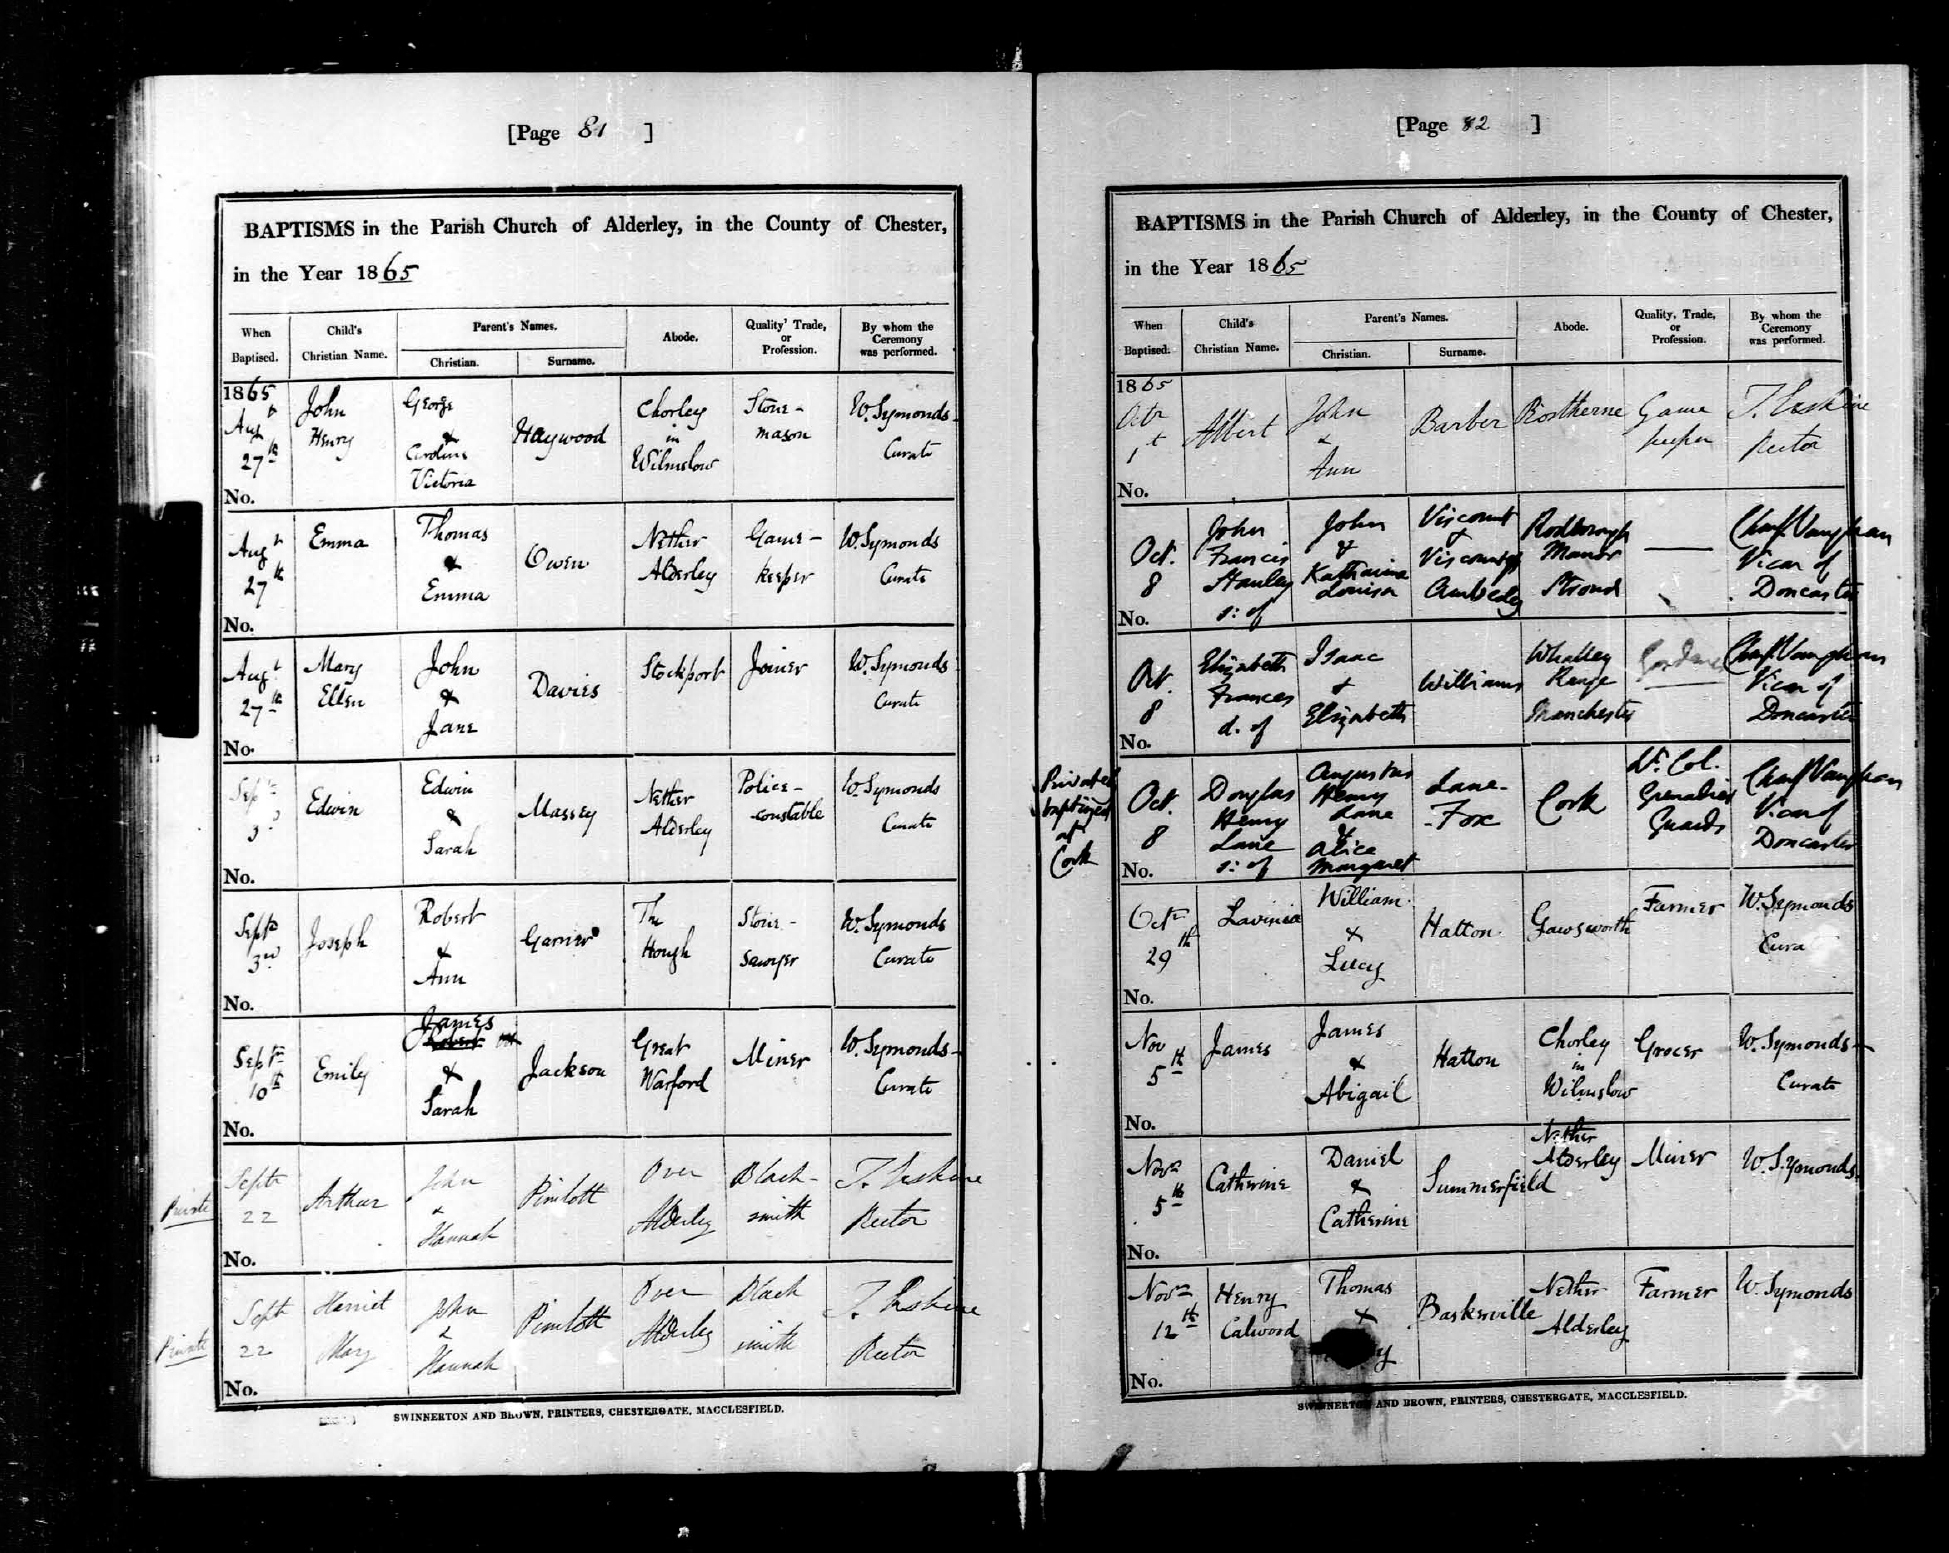 [Page 81 ]
BAPTISMS in the Parish Church of Alderley, in the County of Chester,
in the Year 1865
When Baptised. Child's Christian Name. Parent's Names. Christian. Surname. Abode. Quality' Trade, or Profession. By whom the Ceremony was performed.
1865 Augt 27th No. John Henry George & Caroline Victoria Haywood Chorley in Wilmslow Stone-mason W. Symonds Curate
Augt 27th No. Emma Thomas & Emma Owen Nether Alderley Game-keeper W. Symonds Curate
Augt 27th No. Mary Ellen John & Jane Davies Stockport Joiner W. Symonds Curate
Septr 3d No. Edwin Edwin & Sarah Massey Nether Alderley Police-constable W. Symonds Curate
Septr 3rd No. Joseph Robert & Ann Garner The Hough Stone-sawyer W. Symonds Curate
Septr 10th No. Emily James Robert & Sarah Jackson Great Warford Miner W. Symonds Curate
Private Septr 22 No. Arthur John & Hannah Pimlott Over Alderley Black-smith T. Erskine Rector
Private Sept 22 No. Harriet Mary John & Hannah Pimlott Over Alderley Black smith T. Erskine Rector
SWINNERTON AND BROWN, PRINTERS, CHESTERGATE, MACCLESFIELD.
[Page 82 ]
BAPTISMS in the Parish Church of Alderley, in the County of Chester,
in the Year 1865
When Baptised. Child's Christian Name. Parent's Names. Christian. Surname. Abode. Quality, Trade, or Profession. By whom the Ceremony was performed.
1865 Octr 1t No. Albert John & Ann Barber Rostherne Game keeper T. Erskine Rector
Oct. 8 No. John Francis Stanley s: of John & Katharine Louisa Viscount & Viscountess Amberley Rodborough Manor Stroud — Chas. J. Vaughan Vicar of Doncaster
Oct. 8 No. Elizabeth Frances d. of Isaac & Elizabeth Williams Whalley Range Manchester Gardener Chas. J. Vaughan Vicar of Doncaster
Privately baptized at Cork Oct. 8 No. Douglas Henry Lane s: of Augustus Henry Lane & Alice Margaret Lane-Fox Cork Lt. Col. Grenadier Guards Chas. J. Vaughan Vicar of Doncaster
Octr 29th No. Lavinia William & Lucy Hatton Gawsworth Farmer W. Symonds Cura
Nov 5th No. James James & Abigail Hatton Chorley in Wilmslow Grocer W. Symonds Curate
Novr 5th No. Catherine Daniel & Catherine Summerfield Nether Alderley Miner W. Symonds
Novr 12th No. Henry Calwood Thomas & Baskerville Nether Alderley Farmer W. Symonds
SWINNERTON AND BROWN, PRINTERS, CHESTERGATE, MACCLESFIELD.